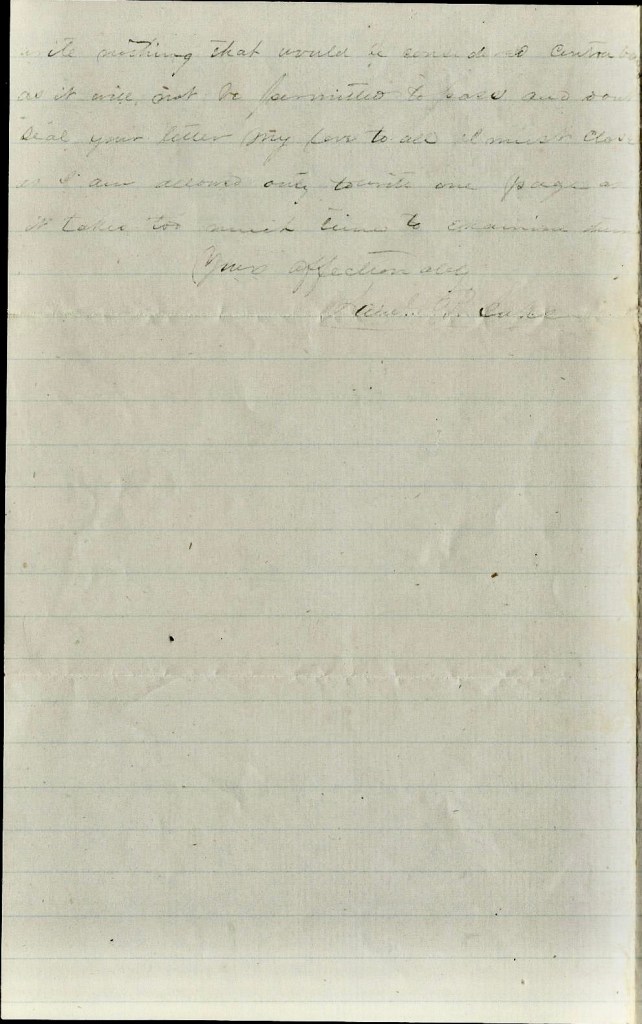 write nothing that would be considered contraba
as it will not be permitted to pass and dont
seal your letter My love to all I must close
as I am allowed only to write one page as
it takes too much time to examine them
Yours affectionately